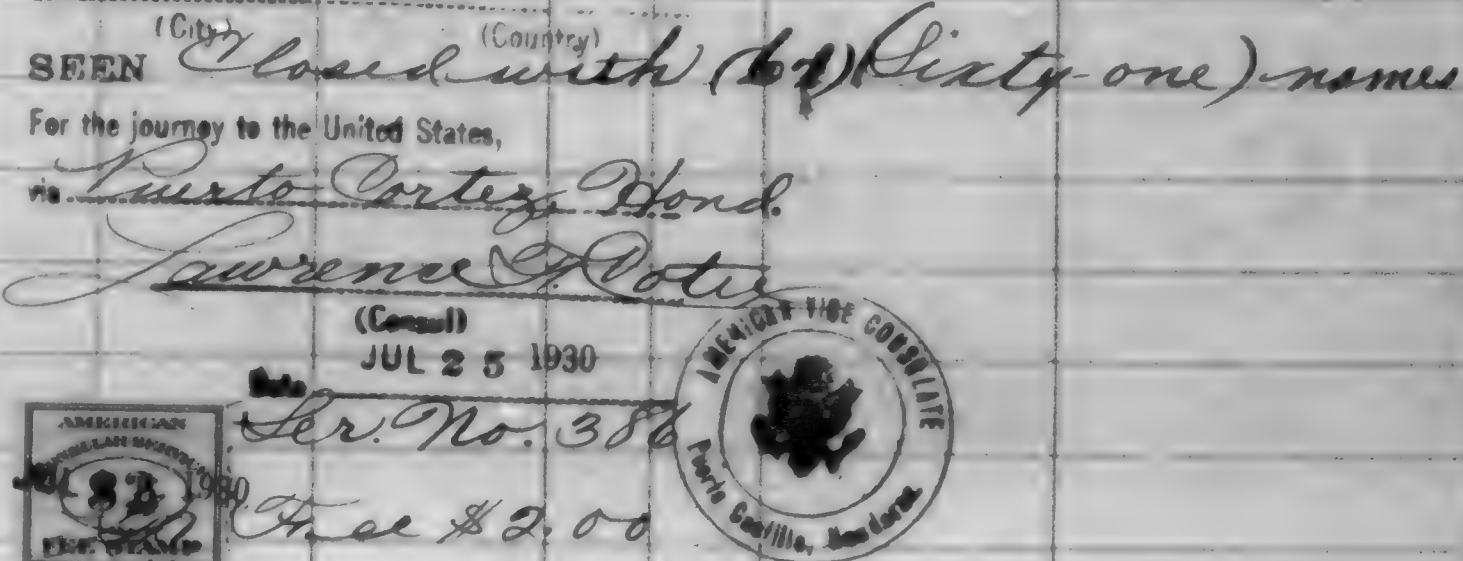 (City) (Country)
SEEN Closed with (61) (Sixty-one) names
For the journey to the United States,
via Puerto Cortez, Hond.
Lawrence F. Cotie
(Consul)
JUL 25 1930
Date
Ser. No. 386
Fee $2.00
AMERICAN VICE CONSULATE
Puerto Castilla, Honduras
AMERICAN
1930
FEE STAMP